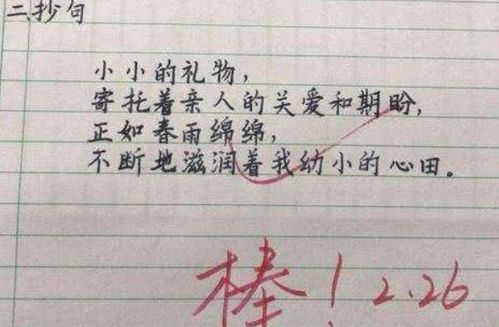 二抄句
小小的礼物，
寄托着亲人的关爱和期盼，
正如春雨绵绵，
不断地滋润着我幼小的心田。
棒！2.26